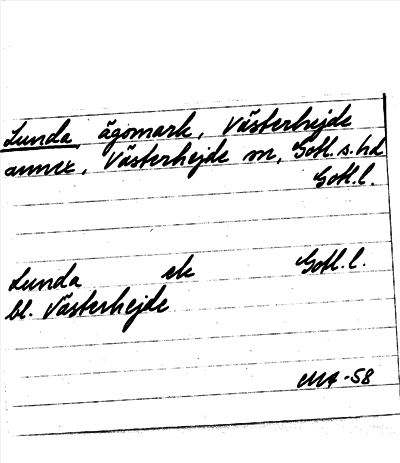 Lunda, ägomark, Västerhejde
annex, Västerhejde sn, Gotl. s. hd
Gotl. l.
Lunda ek Gotl. l.
bl. Västerhejde
MA -58